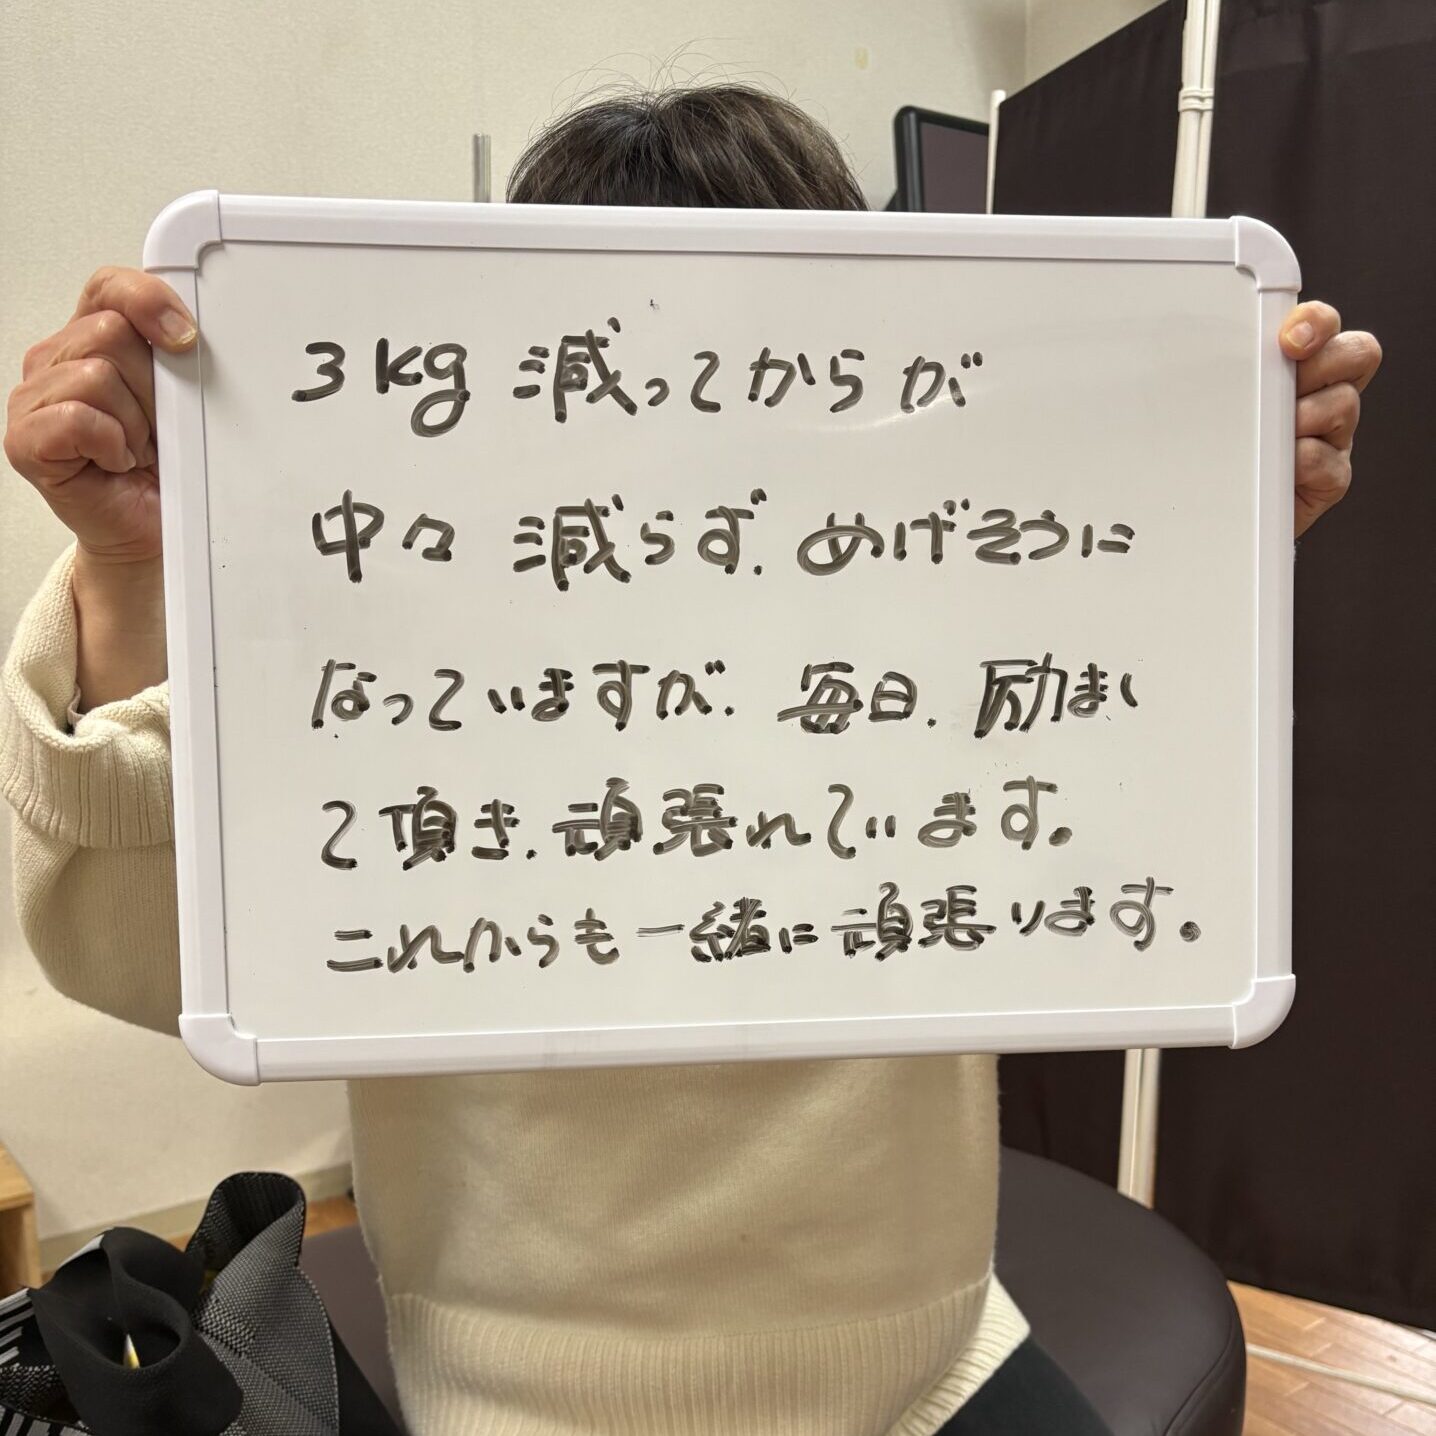 3kg 減ってからが
中々 減らず、めげそうに
なっていますが、毎日、励まし
て頂き、頑張れています。
これからも一緒に頑張ります。